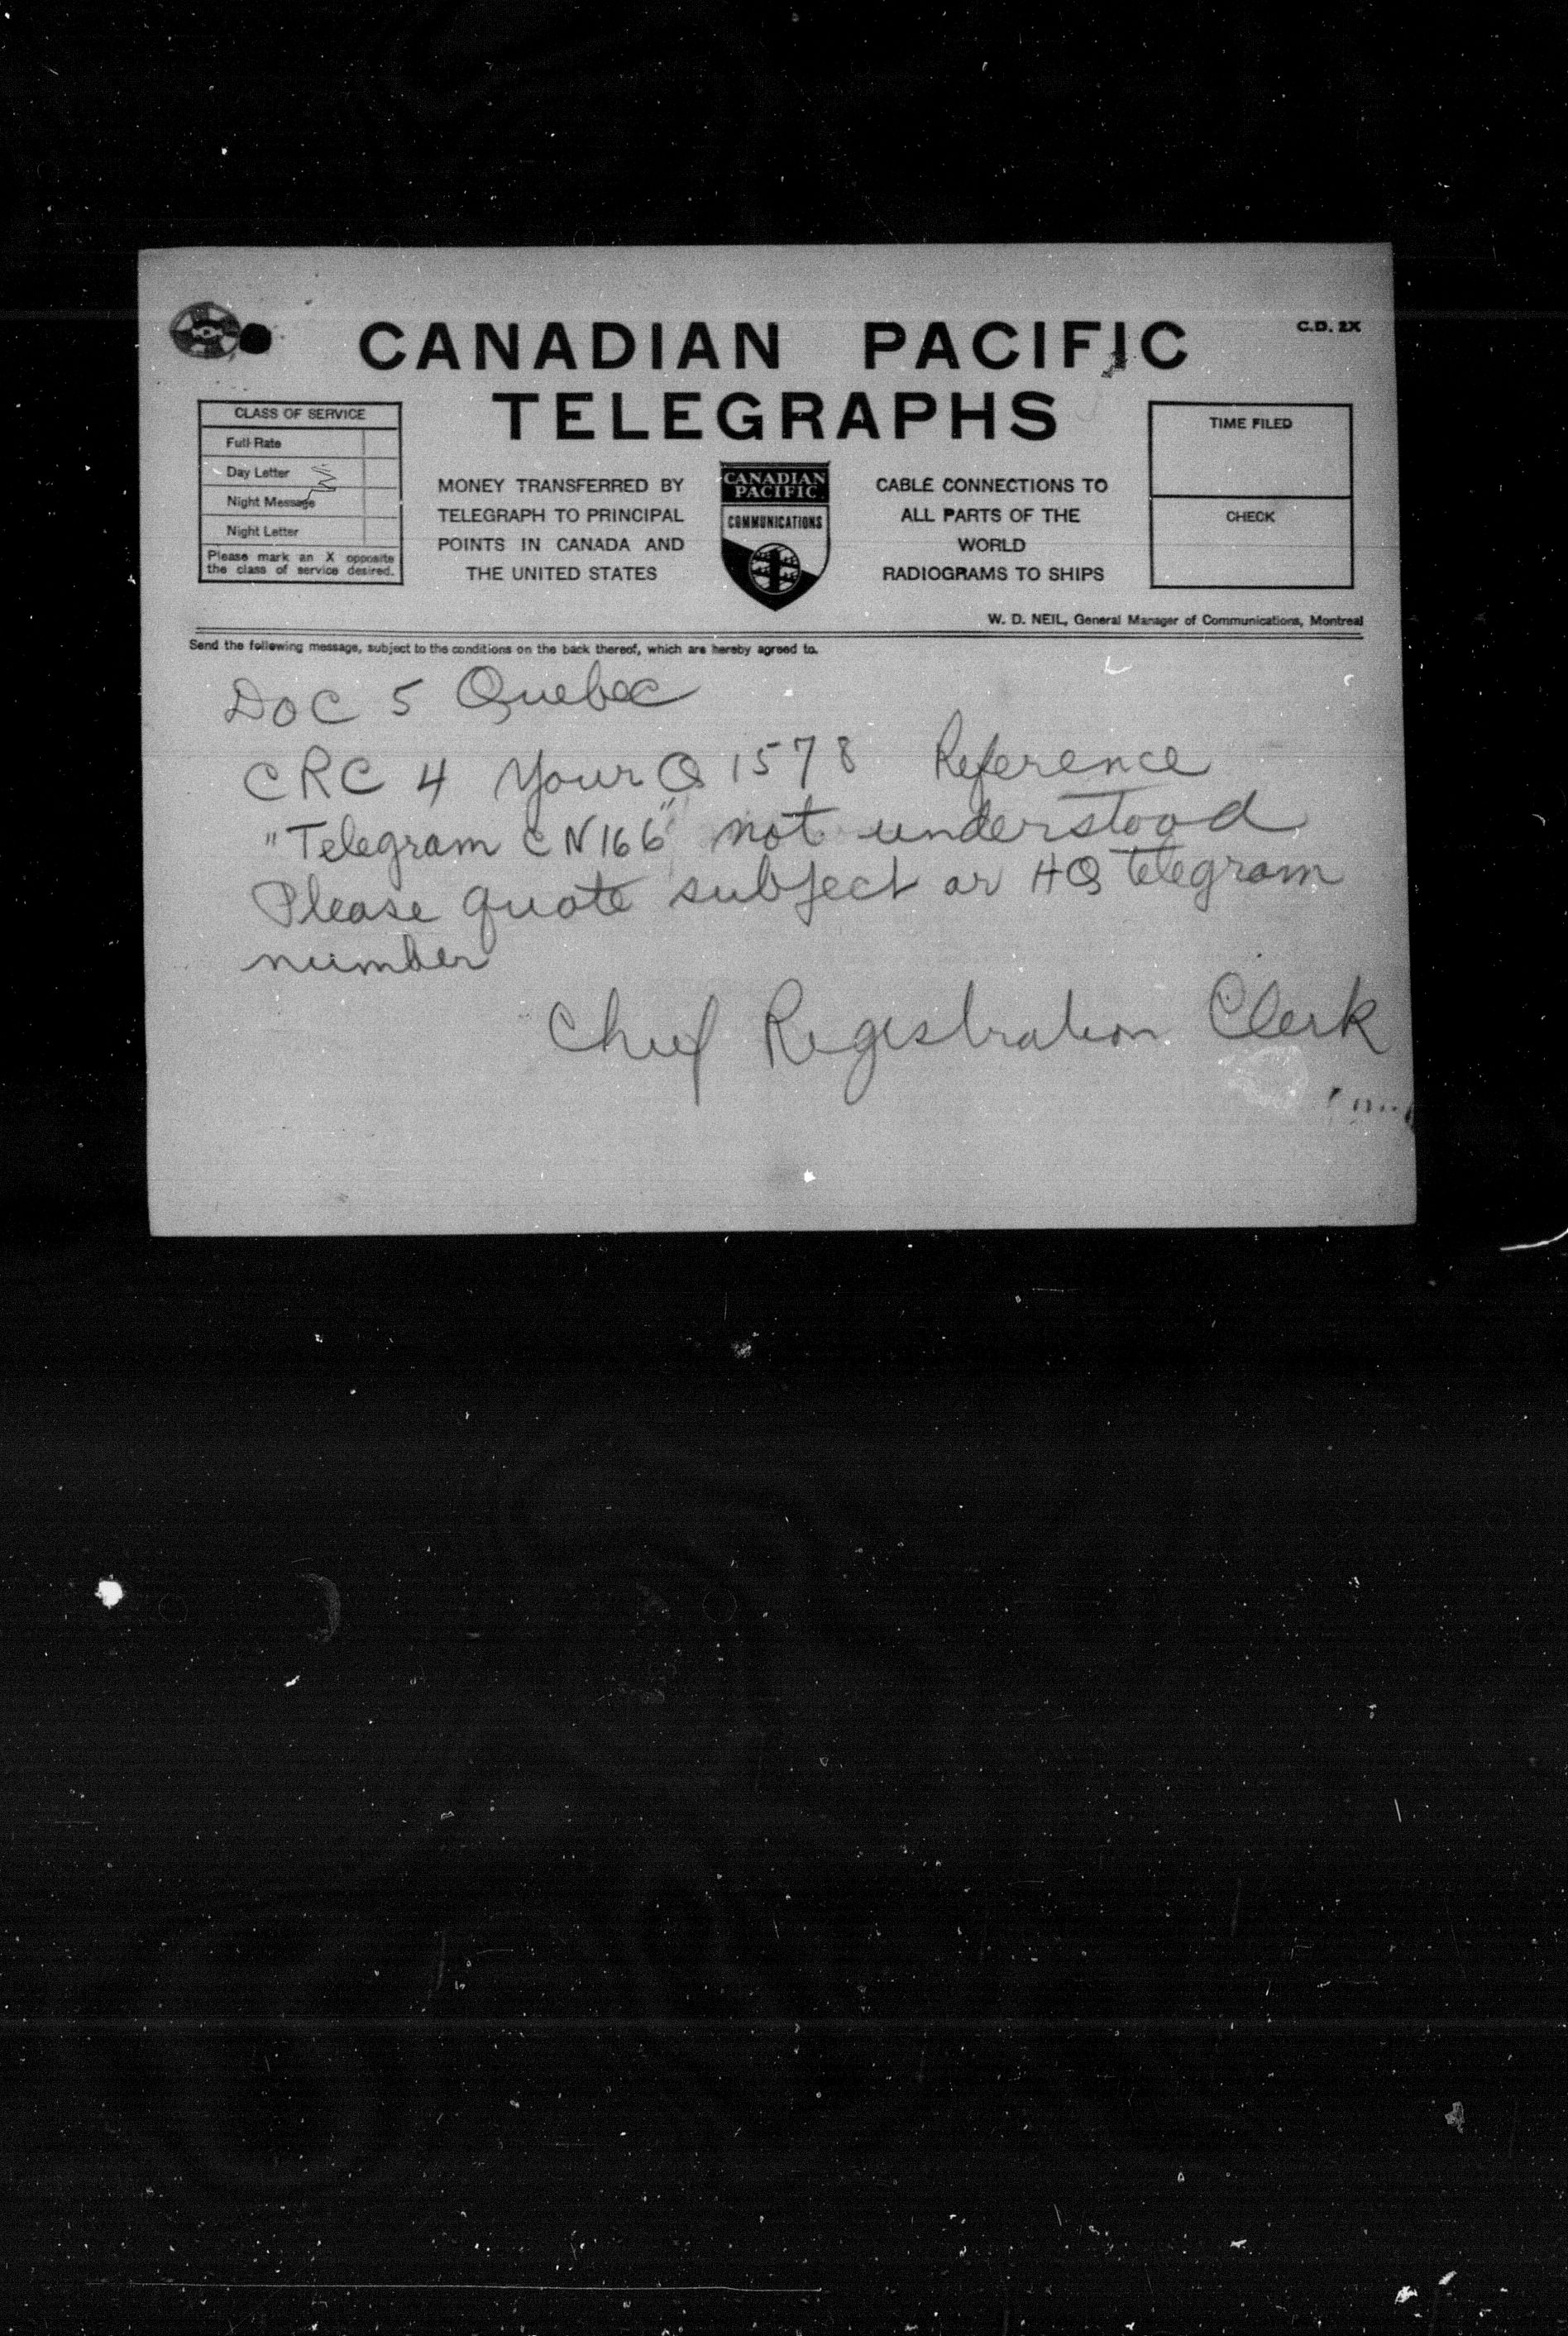 CANADIAN PACIFIC
TELEGRAPHS
C.D. 2X
CLASS OF SERVICE
Full-Rate
Day Letter
Night Message
Night Letter
Please mark an X opposite
the class of service desired.
MONEY TRANSFERRED BY
TELEGRAPH TO PRINCIPAL
POINTS IN CANADA AND
THE UNITED STATES
CANADIAN
PACIFIC
COMMUNICATIONS
CABLE CONNECTIONS TO
ALL PARTS OF THE
WORLD
RADIOGRAMS TO SHIPS
TIME FILED
CHECK
W. D. NEIL, General Manager of Communications, Montreal
Send the following message, subject to the conditions on the back thereof, which are hereby agreed to.
DOC 5 Quebec
CRC 4 Your Q 1578 Reference
"Telegram CN166" not understood
Please quote subject or HQ telegram
number
Chief Registration Clerk